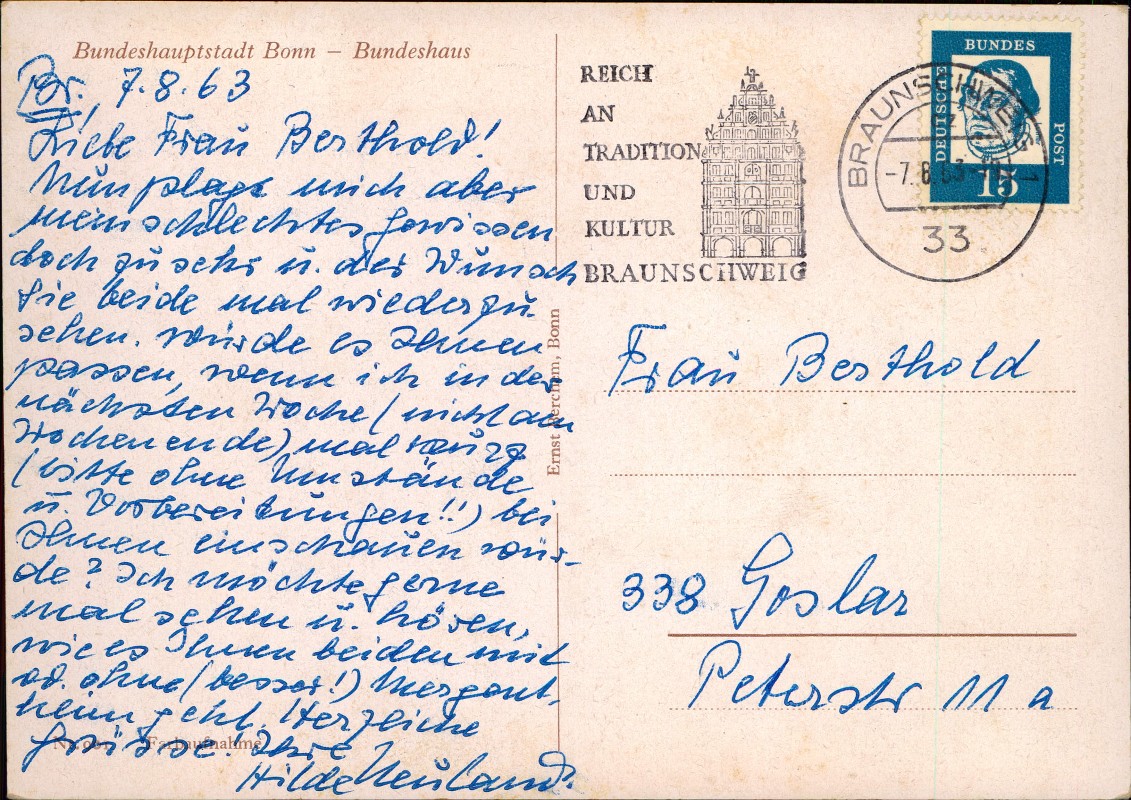 Bundeshauptstadt Bonn – Bundeshaus
Br., 7.8.63
Liebe Frau Berthold!
Nun plagt mich aber
mein schlechtes Gewissen
doch zu sehr u. der Wunsch
Sie beide mal wiederzu-
sehen. Würde es Ihnen
passen, wenn ich in der
nächsten Woche (nicht am
Wochenende) mal kurz
(bitte ohne Umstände
u. Vorbereitungen!!) bei
Ihnen einschauen wür-
de? Ich möchte gerne
mal sehen u. hören,
wie es Ihnen beiden mit
od. ohne (besser!) Mergent-
heim geht. Herzliche
Grüsse! Ihre
Hilde Neuland
Farbaufnahme
Ernst Berchem, Bonn
REICH
AN
TRADITION
UND
KULTUR
BRAUNSCHWEIG
BRAUNSCHWEIG 1
-7.8.63
33
DEUTSCHE
BUNDES
POST
15
Frau Berthold
338 Goslar
Peterstr 11 a